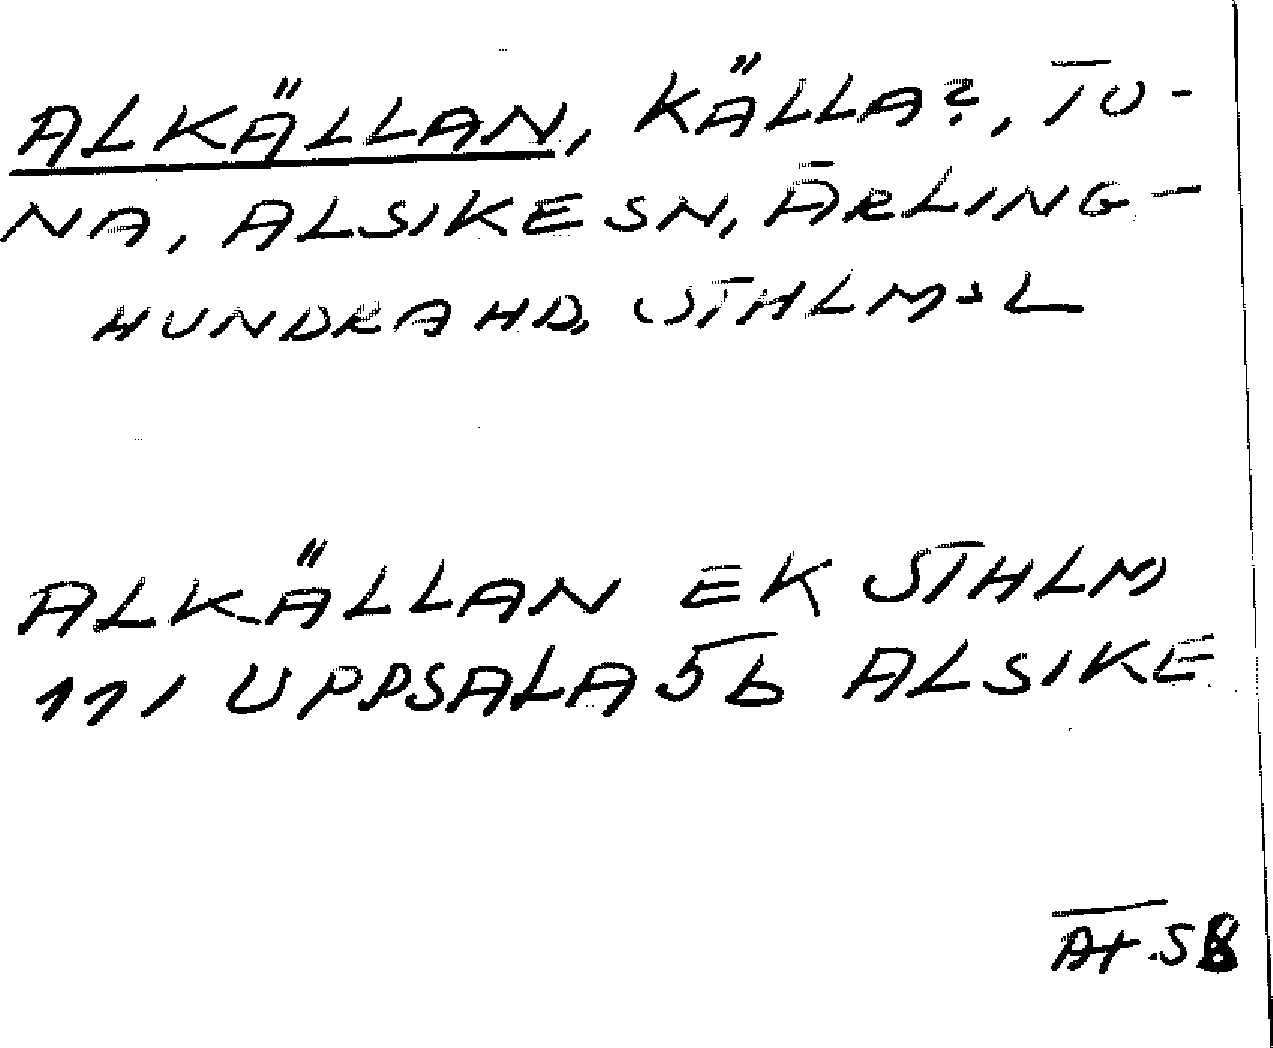 ALKÄLLAN, KÄLLA?, TU-
NA, ALSIKE SN, ÄRLING-
HUNDRA HD, STHLMS L
ALKÄLLAN EK STHLM
111 UPPSALA 5b ALSIKE